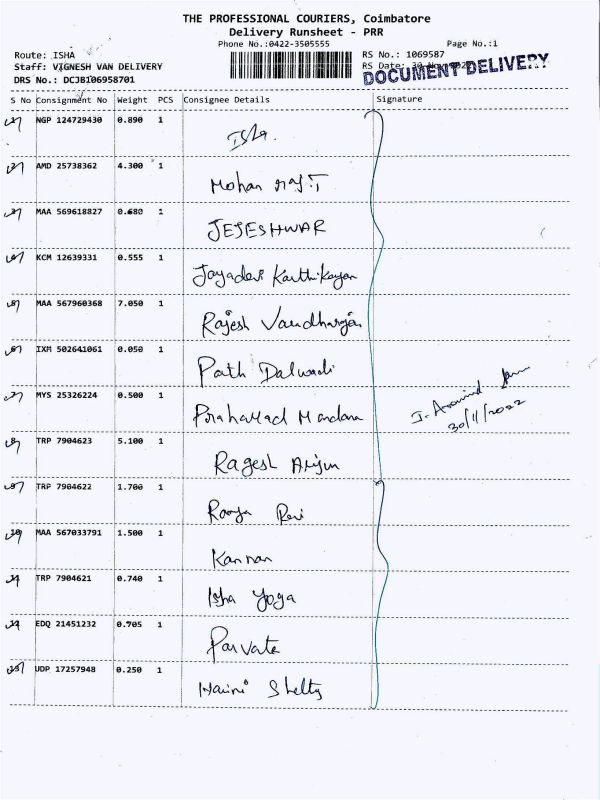 THE PROFESSIONAL COURIERS, Coimbatore
Delivery Runsheet - PRR
Phone No.:0422-3505555
Page No.:1
Route: ISHA
RS No.: 1069587
Staff: VIGNESH VAN DELIVERY
RS Date: 30 Nov 2022
DOCUMENT DELIVERY
DRS No.: DCJB106958701
S No Consignment No Weight PCS Consignee Details Signature
1 NGP 124729430 0.890 1 Isha.
2 AMD 25738362 4.300 1 Mohan raj.T
3 MAA 569618827 0.680 1 JEJESHWAR
4 KCM 12639331 0.555 1 Jayadevi Karthikayan
5 MAA 567960368 7.050 1 Rajesh
6 IXM 502641061 0.050 1 Path Dalwadi
7 MYS 25326224 0.500 1 Mandana
J. Aravind
30/11/2022
8 TRP 7904623 5.100 1 Ragesh Arijun
9 TRP 7904622 1.700 1 Ramya Revi
10 MAA 567033791 1.500 1 Kannan
11 TRP 7904621 0.740 1 Isha Yoga
12 EDQ 21451232 0.705 1 Parvate
13 UDP 17257948 0.250 1 Shelty